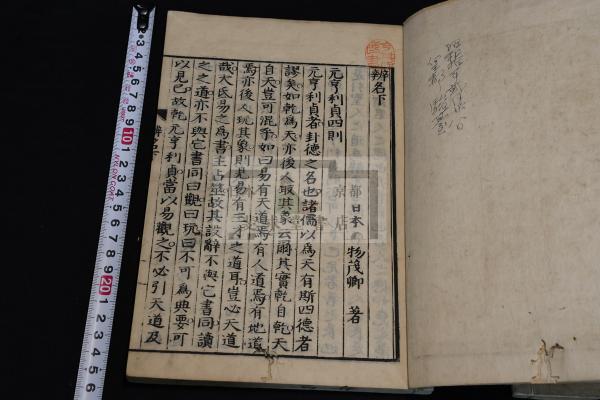 辨名下
日本 物茂卿 著
元亨利貞四則
元亨利貞者卦德之名也諸儒以為天有斯四德者
謬矣如乾為天亦後人取其象云爾其實乾自乾天
自天豈可混乎如曰易有天道焉有人道焉有地道
焉亦後人玩其象則見易有三才之道耳豈必天道
哉大氐易之為書主占筮故其設辭不與它書同讀
之之道亦不與它書同曰觀曰玩曰不可為典要可
以見已故乾元亨利貞當以易觀之不必引天道及
辨名下